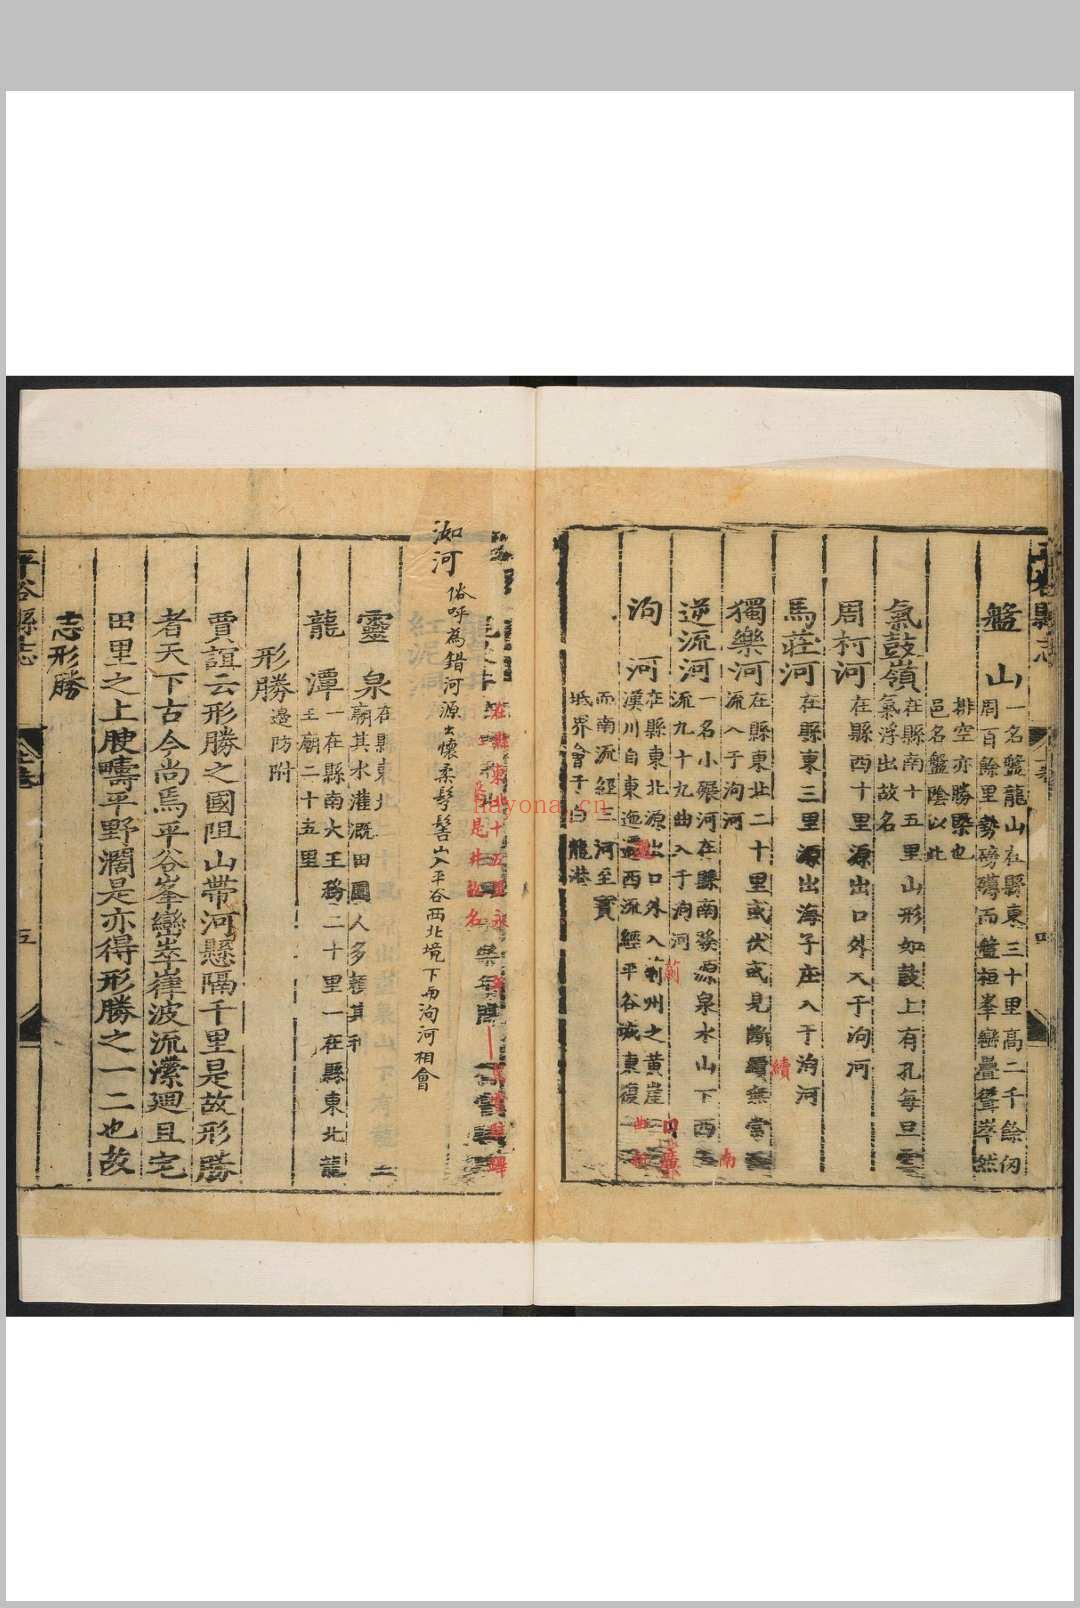 盤山
一名盤龍山在縣東三十里高二千餘仞
周百餘里勢磅礴而盤桓峯巒疊聳萃然
排空亦勝槩也
邑名盤陰以此
氣鼓嶺
在縣南十五里山形如鼓上有孔每旦
氣浮出故名
周柯河
在縣西十里源出口外入于泃河
馬莊河
在縣東三里源出海子庄入于泃河
獨樂河
在縣東北二十里或伏或見斷續無常
流入于泃河
續
南
逆流河
一名小碾河在縣南發源泉水山下西
流九十九曲入于泃河
泃河
在縣東北源出口外入薊州之黃崖口
漢川自東迤西流經平谷城東復
而南流經三河至寶
坻界會于白龍港
薊
泃河 俗呼為錯河源出懷柔髩髻山入平谷西北境下而泃河相會
在縣東北十五里
是井故名
靈泉
在縣東北
廟其水灌溉田園人多賴其利
龍潭
一在縣南大王務二十里一在縣東北龍
王廟二十五里
形勝 邊防附
賈誼云形勝之國阻山帶河懸隔千里是故形勝
者天下古今尚焉平谷峯巒崒嵂波流瀠迴且宅
田里之上腴疇平野濶是亦得形勝之一二也故
志形勝
平谷縣志
五
hayona.cn